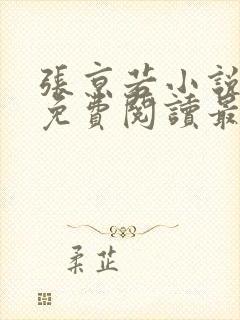 張京若小說
免費閱讀最
柔芷